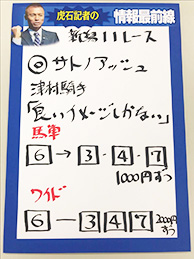 虎石記者の
情報最前線
新潟11レース
◎サトノアッシュ
津村騎手
「良いイメージしかない」
馬単
6→3・4・7
1000円ずつ
ワイド
6―3 4 7 2000円
ずつ